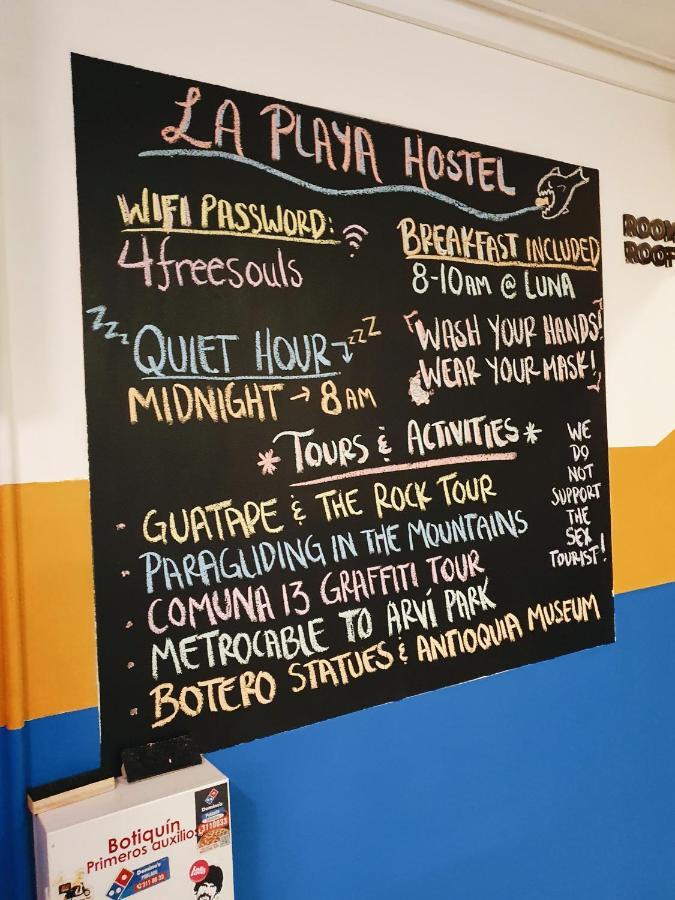 LA PLAYA HOSTEL
WIFI PASSWORD:
4freesouls
BREAKFAST INCLUDED
8-10AM @ LUNA
ZZZ QUIET HOUR ZZZ
MIDNIGHT → 8AM
WASH YOUR HANDS!
WEAR YOUR MASK!
* TOURS & ACTIVITIES *
- GUATAPE & THE ROCK TOUR
- PARAGLIDING IN THE MOUNTAINS
- COMUNA 13 GRAFFITI TOUR
- METROCABLE TO ARVÍ PARK
- BOTERO STATUES & ANTIOQUIA MUSEUM
WE
DO
NOT
SUPPORT
THE
SEX
TOURIST!
ROOM
ROOF
Botiquín
Primeros auxilios
Domino's
3110033
Domino's
311 00 33